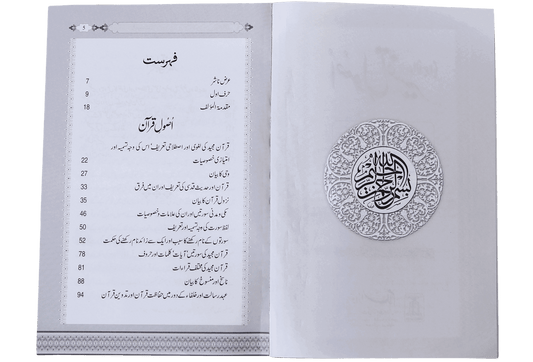 فہرست
عرض ناشر 7
حرف اول 9
مقدمۃ المؤلف 18
اُصولِ قرآن
قرآن مجید کی لغوی اور اصطلاحی تعریف‘ اس کی وجہ تسمیہ اور
امتیازی خصوصیات 22
وحی کا بیان 27
قرآن اور حدیث قدسی کی تعریف اور ان میں فرق 33
نزولِ قرآن کا بیان 35
مکی و مدنی سورتیں اور ان کی علامات و خصوصیات 46
لفظ سورت کی وجہ تسمیہ اور تعریف 50
سورتوں کے نام رکھنے کا سبب اور ایک سے زائد نام رکھنے کی حکمت 52
قرآن مجید کی سورتیں‘ آیات‘ کلمات اور حروف 78
قرآن مجید کی مختلف قراءات 81
ناسخ اور منسوخ کا بیان 88
عہد رسالت اور خلفاء کے دور میں حفاظت قرآن اور تدوین قرآن 94
بسم الله الرحمن الرحيم